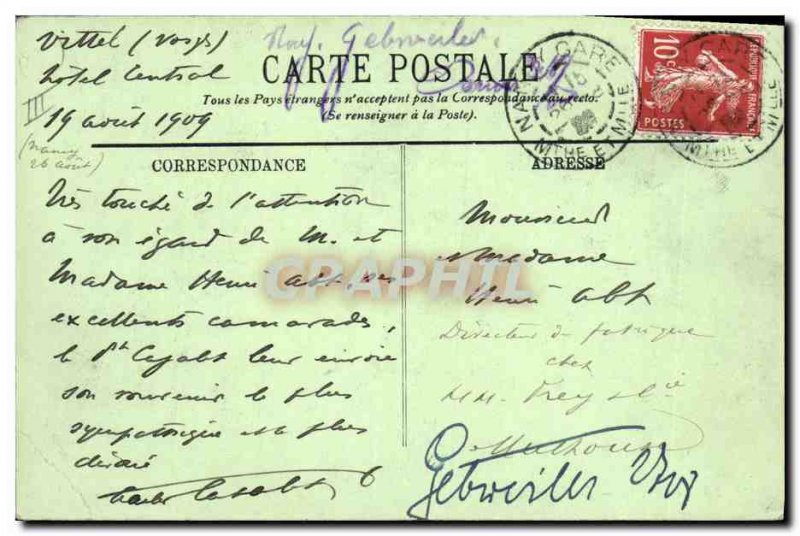 Vittel (Vosges)
hôtel Central
19 août 1909
III
(Nancy
26 août)
Gebweiler
CARTE POSTALE
Tous les Pays étrangers n'acceptent pas la Correspondance au recto.
(Se renseigner à la Poste).
NANCY GARE
MTHE ET MLLE
10c
POSTES
CORRESPONDANCE
Très touché de l'attention
à son égard de M. et
Madame Henri Abt, ses
excellents camarades,
le Dt Cesabt leur envoie
son souvenir le plus
sympathique et le plus
dévoué
ADRESSE
Monsieur
et Madame
Henri Abt
Directeur de fabrique
chez
MM. Frey & Cie
Mulhouse
Gebweiler
CPAPHIL